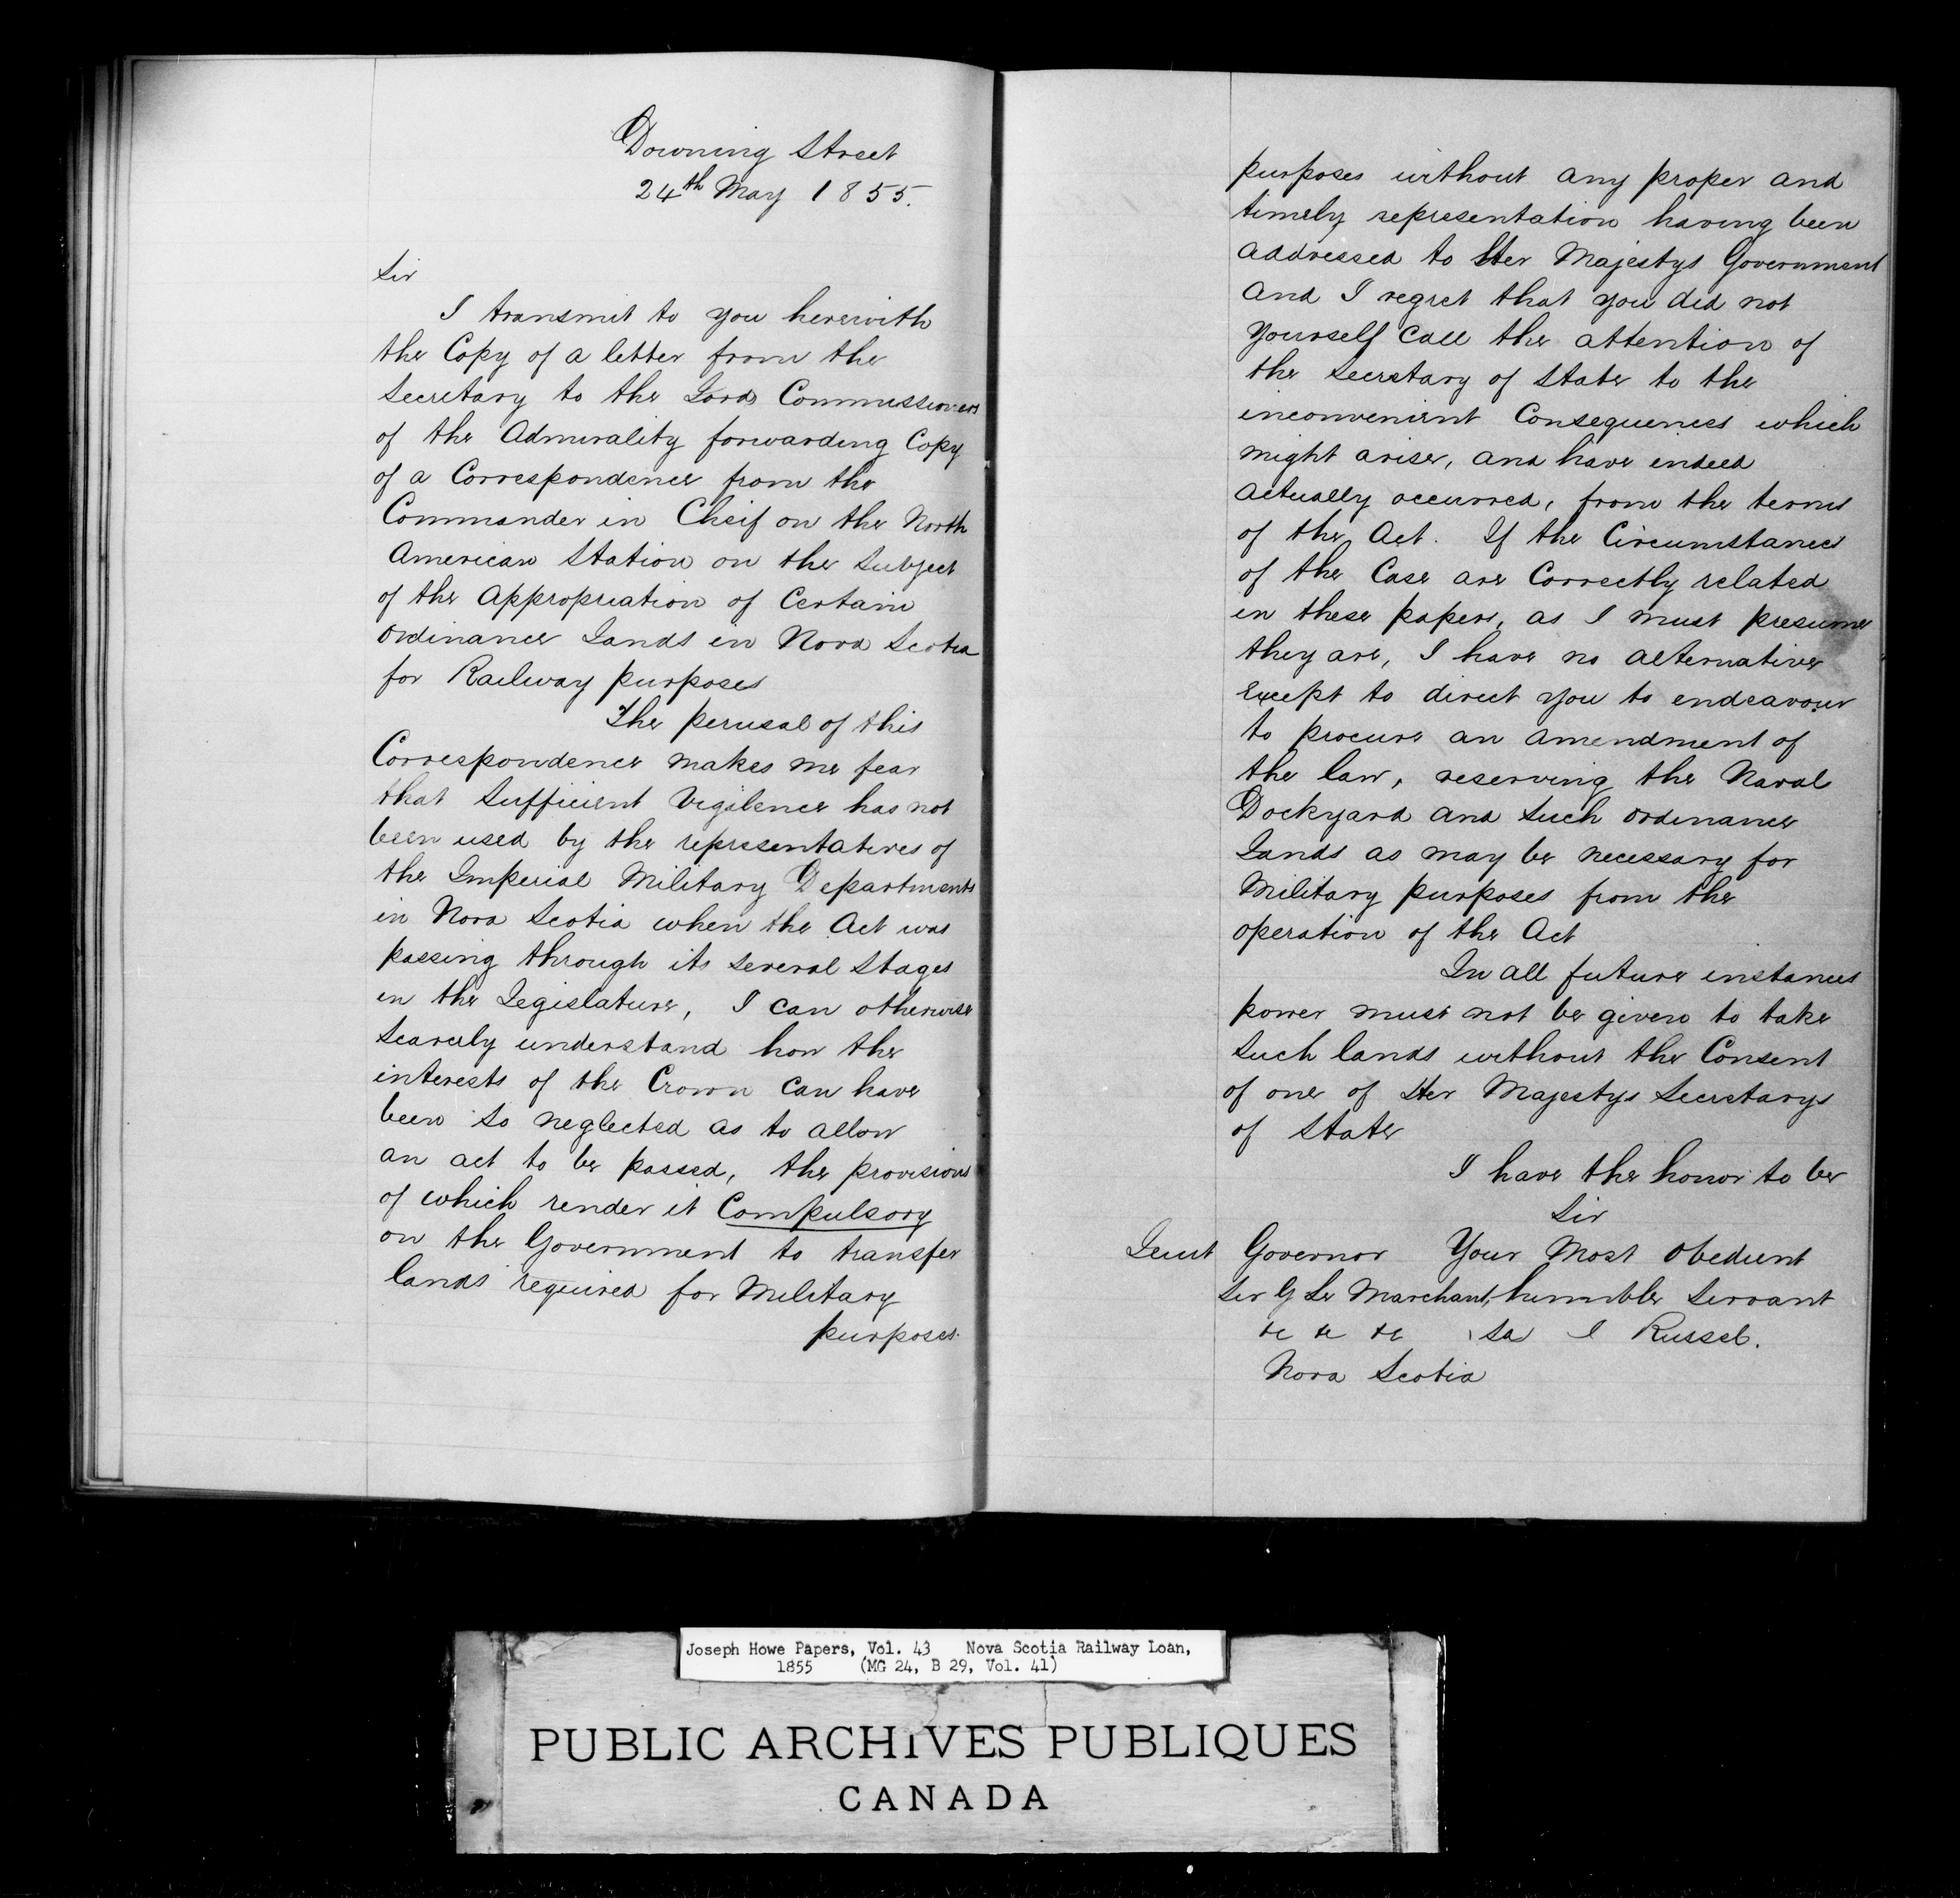 Downing Street
24th May 1855.
Sir
I transmit to you herewith
the Copy of a letter from the
Secretary to the Lords Commissioners
of the Admirality forwarding Copy
of a Correspondence from the
Commander in Cheif on the North
American Station on the Subject
of the Appropriation of Certain
Ordinance Lands in Nova Scotia
for Railway purposes
The perusal of this
Correspondence makes me fear
that Sufficient Vigilence has not
been used by the representatives of
the Imperial Military Departments
in Nova Scotia when the Act was
passing through its several Stages
in the Legislature, I can otherwise
Scarcely understand how the
interests of the Crown Can have
been so neglected as to allow
an act to be passed, the provisions
of which render it Compulsory
on the Government to transfer
lands required for Military
purposes.
purposes without any proper and
timely representation having been
addressed to Her Majestys Government
and I regret that you did not
yourself Call the attention of
the Secretary of State to the
inconvenient Consequences which
might arise, and have indeed
actually occurred, from the terms
of the Act. If the Circumstances
of the Case are Correctly related
in these papers, as I must presume
they are, I have no alternative
Except to direct you to endeavour
to procure an amendment of
the law, reserving the Naval
Dockyard and Such Ordinance
Lands as may be necessary for
Military purposes from the
operation of the Act
In all future instances
power must not be given to take
Such lands without the Consent
of one of Her Majestys Secretarys
of State
I have the honor to be
Sir
Leiut Governor Your Most Obedient
Sir G Le Marchant, humble Servant
&c &c &c J Russel.
Nova Scotia
Joseph Howe Papers, Vol. 43 Nova Scotia Railway Loan,
1855 (MG 24, B 29, Vol. 41)
PUBLIC ARCHIVES PUBLIQUES
CANADA